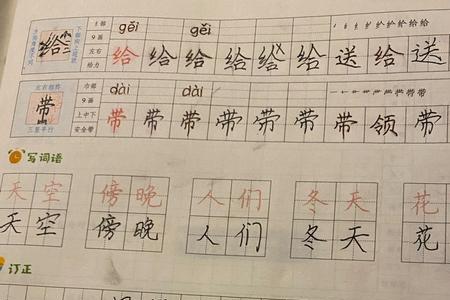 纟部 gěi gěi
9画
左右
给力
给 给 给 给 给 给 给 送 给 送
左右相称
三竖平行
巾部 dài dài
9画
上中下
安全带
带 带 带 带 带 带 带 带 领 带
写词语
天空 傍晚 人们 冬天 花
天空 傍晚 人们 冬天 花
订正